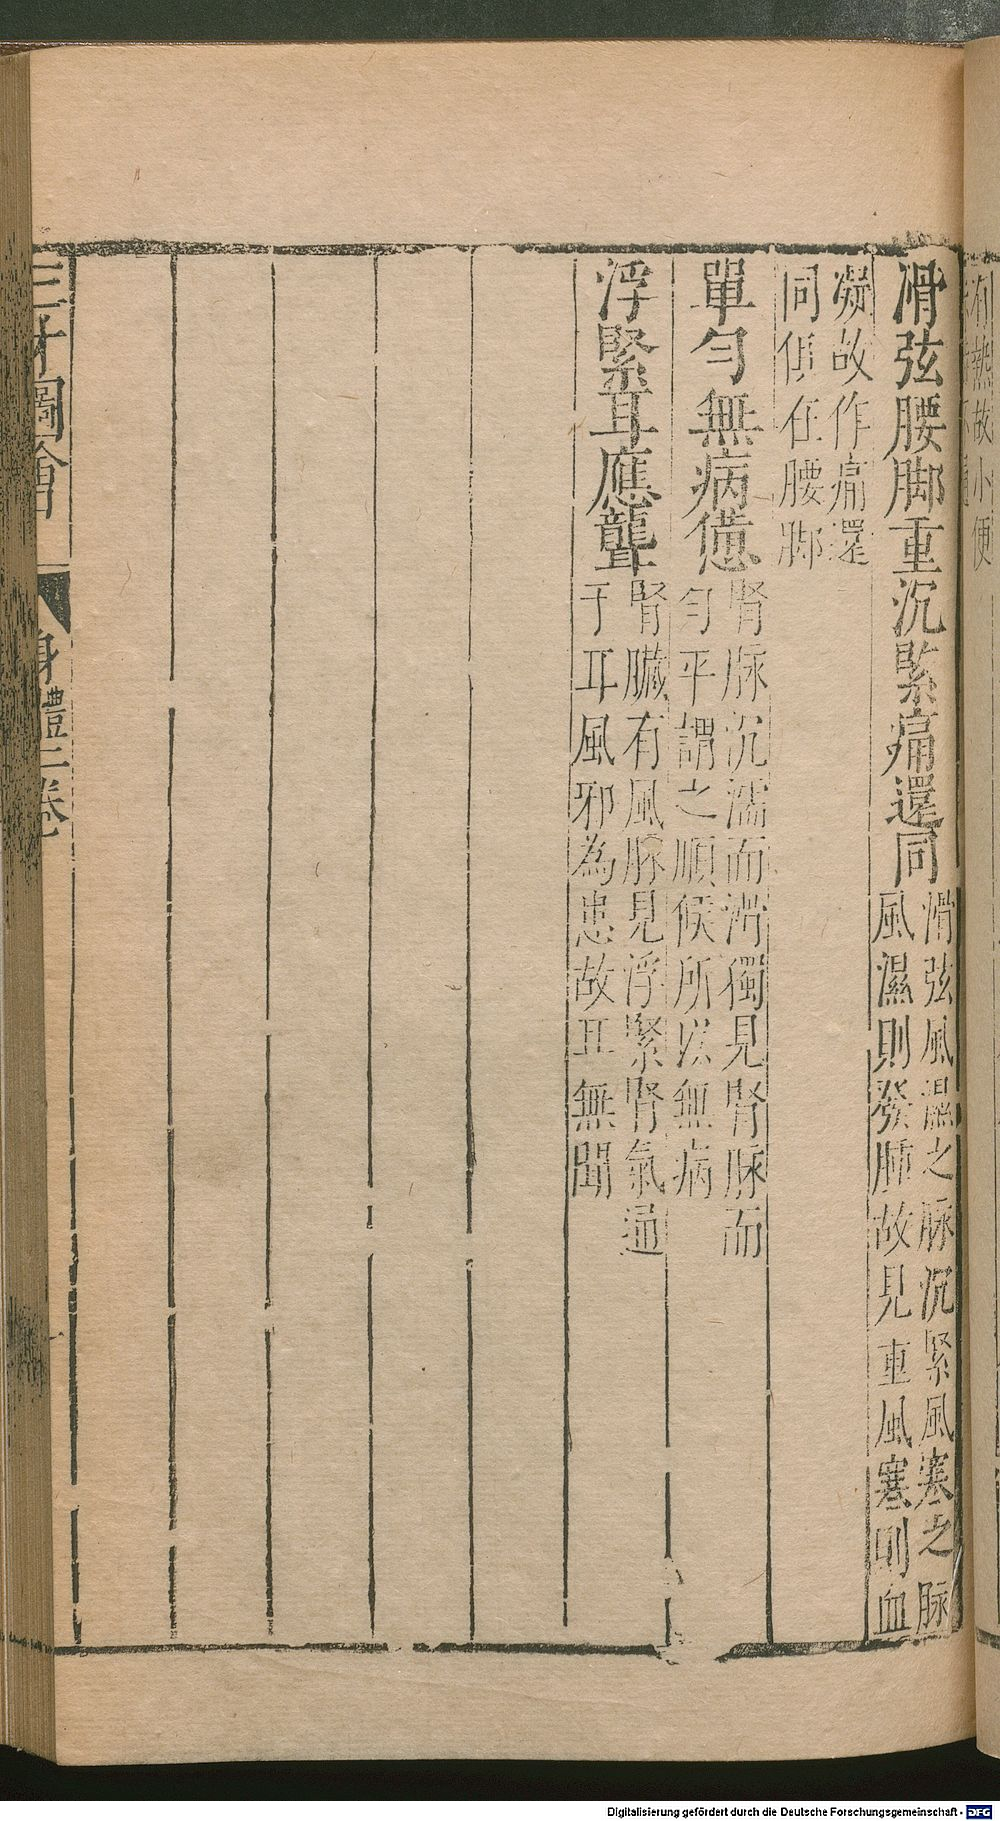 滑弦腰脚重沉緊痛還同
滑弦風濕之脉沉緊風寒之脉
風濕則發肺故見重風寒則血
凝故作痛還
同但在腰脚
單勻無病憊
腎脉沉濡而滑獨見腎脉而
勻平謂之順候所以無病
浮緊耳應聾
腎臟有風脉見浮緊腎氣通
于耳風邪為患故耳無聞
三才圖會
身體二卷
有熱故小便
Digitalisierung gefördert durch die Deutsche Forschungsgemeinschaft - DFG